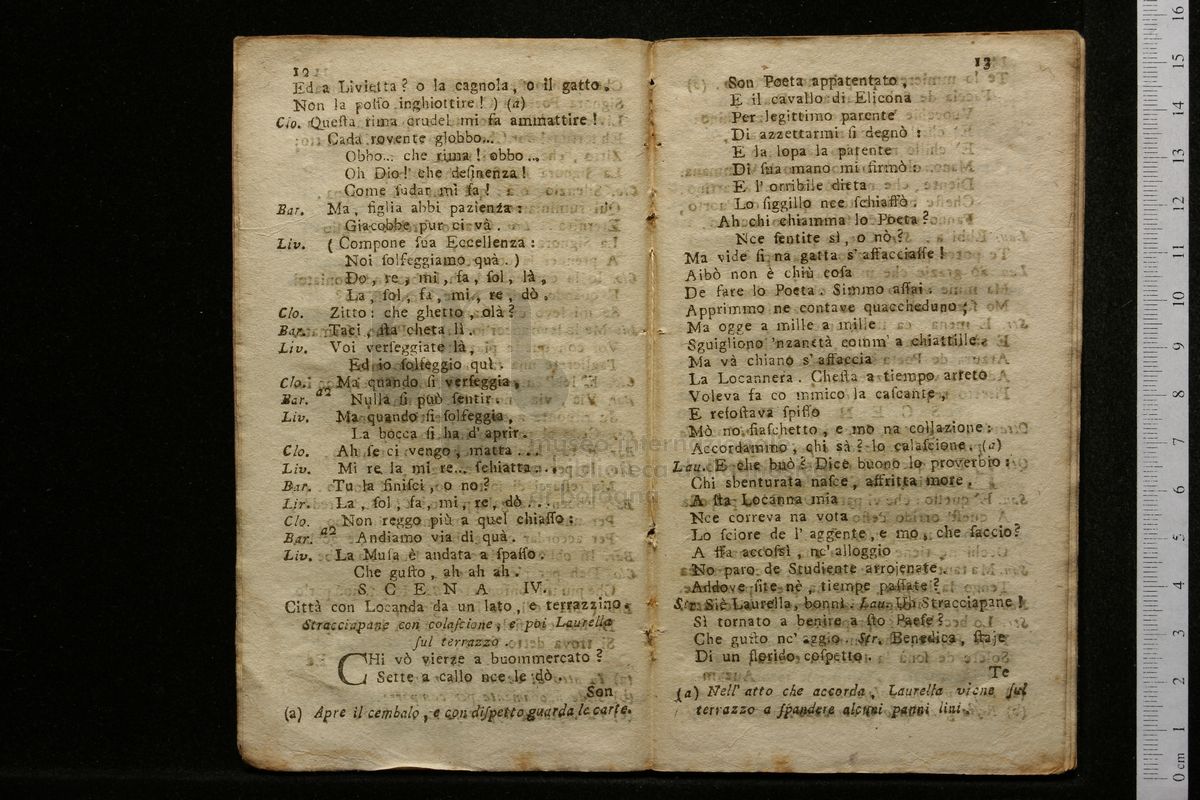 12
Ed a Livietta? o la cagnola, o il gatto.
Non la poſſo inghiottire! ) (a)
Clo. Queſta rima crudel mi fa ammattire!
Cada rovente globbo...
Obbo... che rima! obbo...
Oh Dio! che deſinenza!
Come ſudar mi fa!
Bar. Ma, figlia abbi pazienza:
Giacobbe pur ci và.
Liv. ( Compone ſua Eccellenza:
Noi ſolfeggiamo quà. )
Do, re, mi, fa, ſol, là,
La, ſol, fa, mi, re, dò.
Clo. Zitto: che ghetto, olà?
Bar. Taci, ſta cheta lì.
Liv. Voi verſeggiate là,
Ed io ſolfeggio quì.
Clo. Ma quando ſi verſeggia,
Bar. a2 Nulla ſi può ſentir.
Liv. Ma quando ſi ſolfeggia,
La bocca ſi ha d' aprir.
Clo. Ah ſe ci vengo, matta...
Liv. Mi re la mi re... ſchiatta...
Bar. Tu la finiſci, o no?
Lir. La, ſol, fa, mi, re, dò...
Clo. Non reggo più a quel chiaſſo:
Bar. a2 Andiamo via di quà.
Liv. La Muſa è andata a ſpaſſo.
Che guſto, ah ah ah.
S C E N A IV.
Città con Locanda da un lato, e terrazzino.
Stracciapane con colaſcione, e poi Laurella
ſul terrazzo.
CHi vò vierze a buommercato?
Sette a callo nce le dò.
Son
(a) Apre il cembalo, e con diſpetto guarda le carte.
13
Son Poeta appatentato,
E il cavallo di Elicona
Per legittimo parente
Di azzettarmi ſi degnò:
E la lopa la parente
Di ſua mano mi firmò:
E l' orribile dieta
Lo ſiggillo nce ſchiaffò:
Ah chi chiamma lo Poeta?
Nce ſentite sì, o nò?
Ma vide ſi na gatta s' affacciaſſe!
Aibò non è chiù coſa
De fare lo Poeta. Simmo aſſai:
Apprimmo ne contave quaccheduno;
Ma ogge a mille a mille
Sguigliono 'nzanetà comm' a chiattille.
Ma và chiano s' affaccia
La Locannera. Cheſta a tiempo arreto
Voleva fa co mmico la caſcante,
E reſoſtava ſpiſſo
Mò no fiaſchetto, e mo na collazione:
Accordammo, chi sà? lo calaſcione. (a)
Lau. E che buò? Dice buono lo proverbio:
Chi sbenturata naſce, affritta more,
A ſta Locanna mia
Nce correva na vota
Lo ſciore de l' aggente, e mo, che faccio?
A ſſa accoſsì, nc' alloggio
No paro de Studiente arrojenate.
Addove ſite nè, tiempe paſſate?
Str. Siè Laurella, bonnì. Lau. Uh Stracciapane!
Sì tornato a benire a ſto Paeſe?
Che guſto nc' aggio. Str. Benedica, ſtaje
Di un florido coſpetto.
Te
(a) Nell' atto che accorda, Laurella viene ſul
terrazzo a ſpandere alcuni panni lini.
museo internazionale
e biblioteca della musica
di bologna
0 cm 1 2 3 4 5 6 7 8 9 10 11 12 13 14 15 16